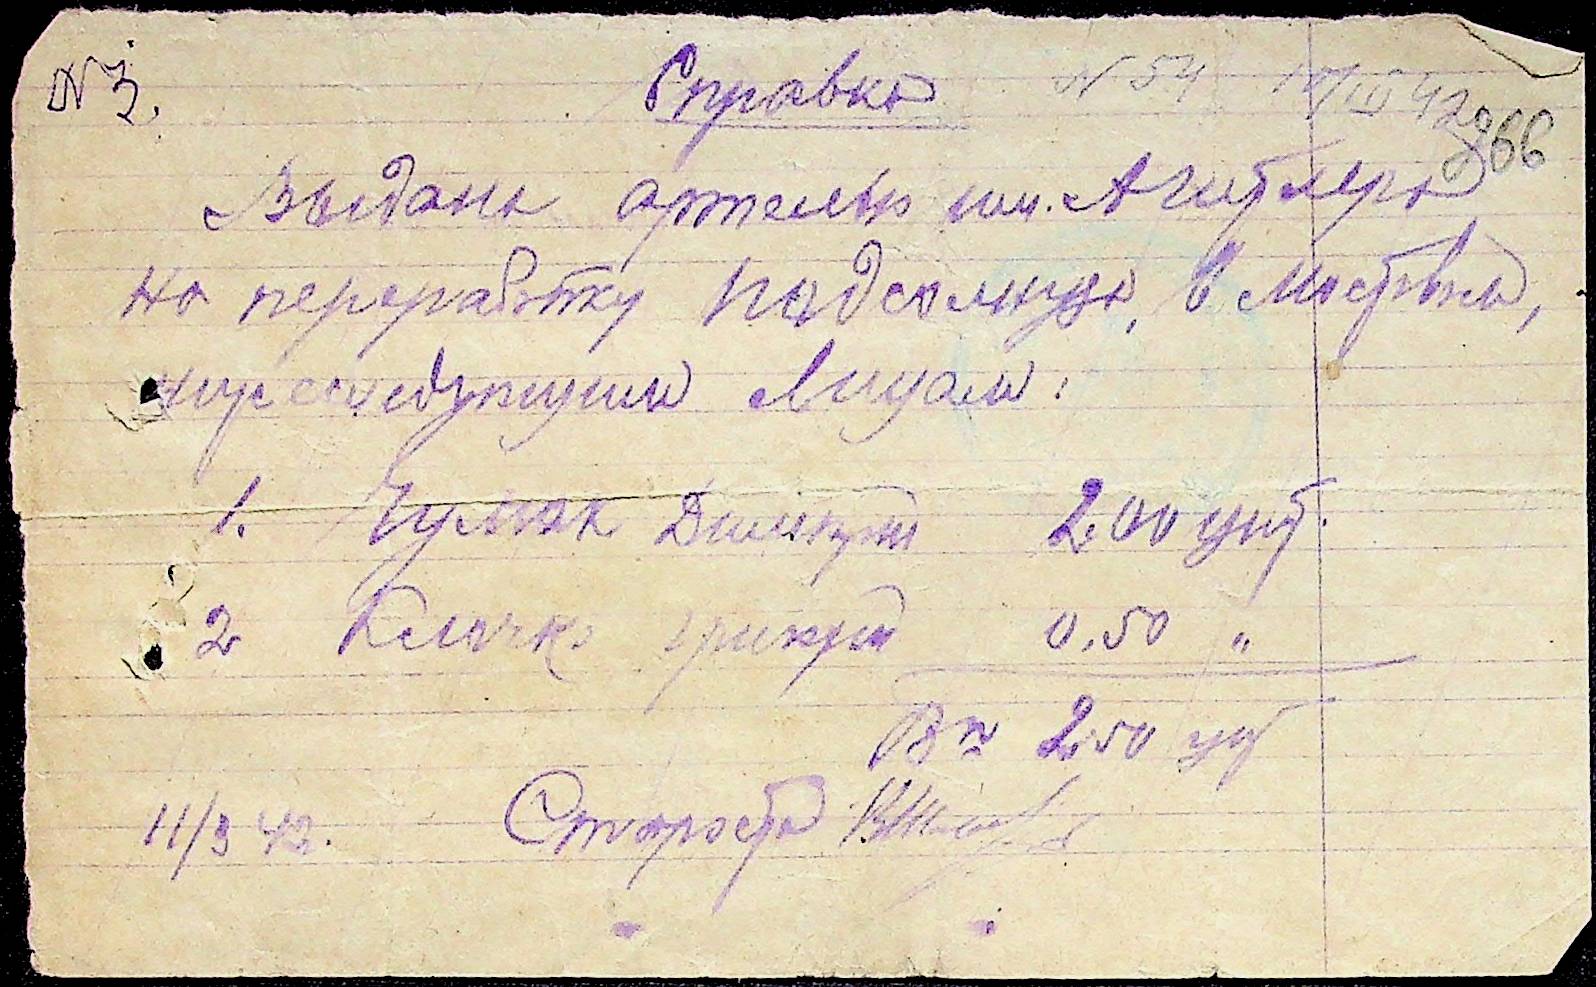 № 3. Справка № 54 11/III 42
366
Выдана артелью им. А Гитлера
на переработку подсолнуха, в Мостовки,
нижеследующим лицам:
1. Чумак Дмитрий 2.00 цнт.
2 Клочко Григорий 0.50 "
Вп 2.50 цнт
11/3 42. Староста